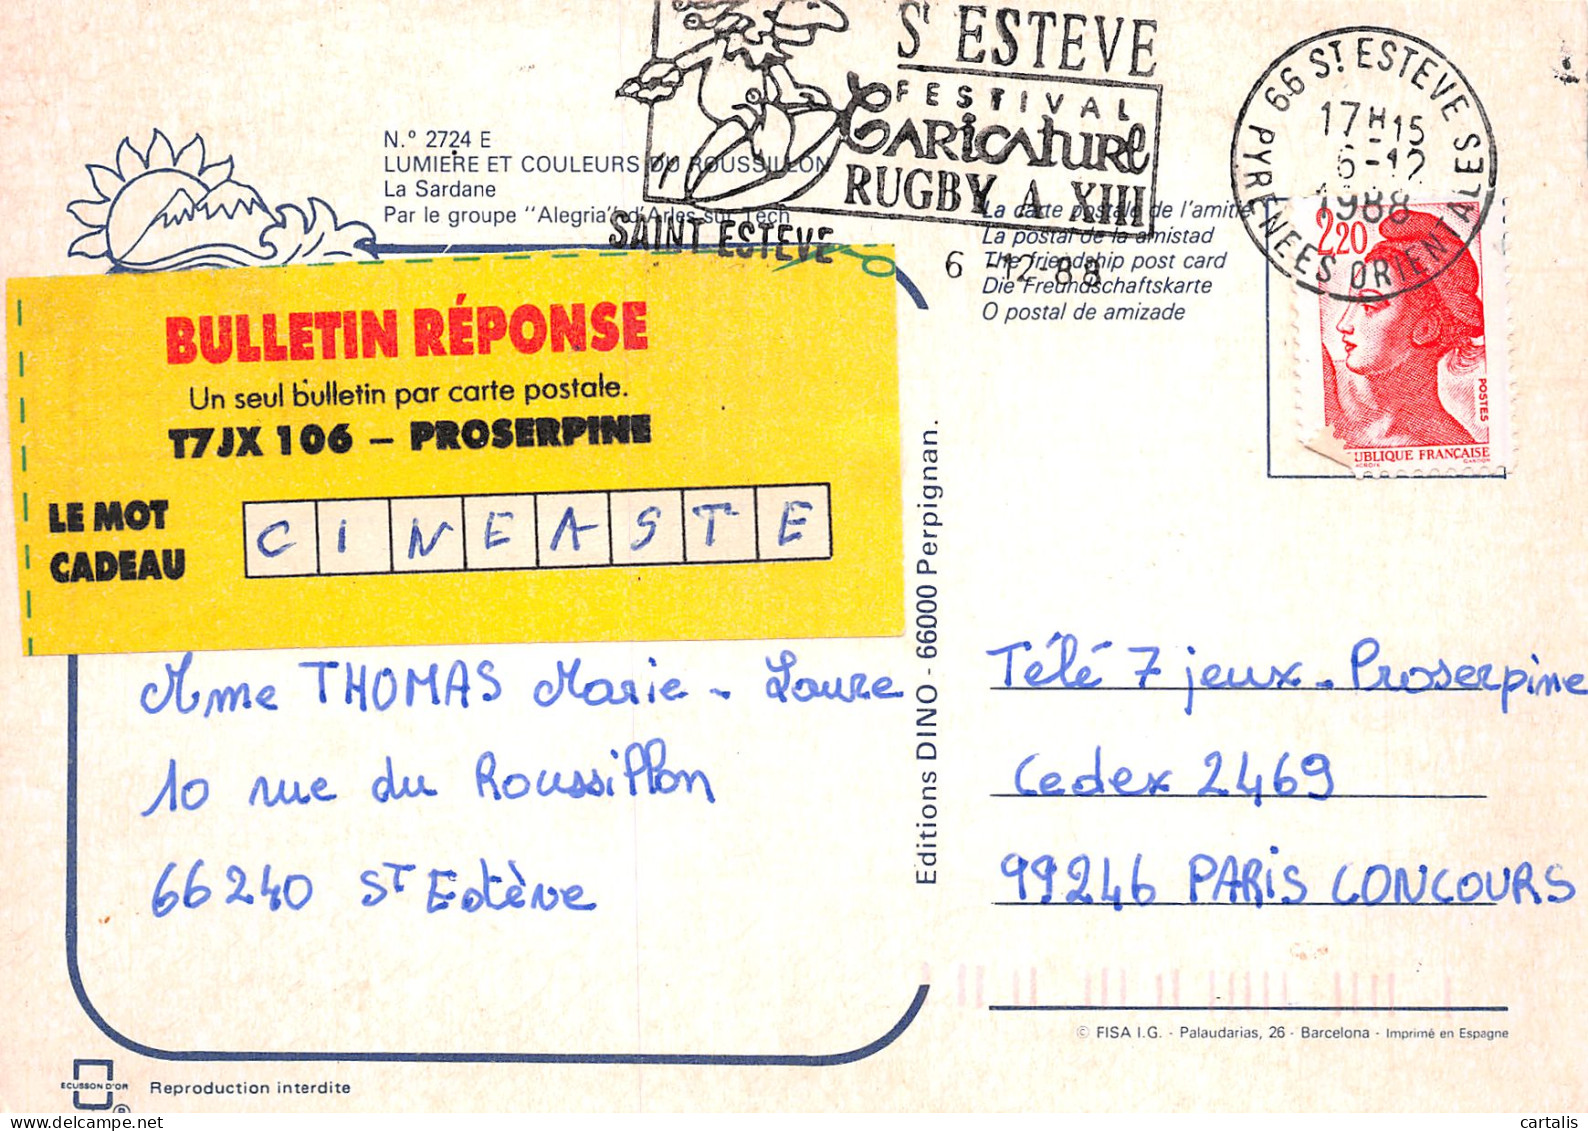 St ESTEVE
FESTIVAL
CARICATURE
RUGBY A XIII
SAINT ESTEVE
6 -12-88
66 ST ESTEVE
PYRENEES ORIENTALES
17H15
6-12
1988
N.º 2724 E
LUMIERE ET COULEURS DU ROUSSILLON
La Sardane
Par le groupe "Alegria" d'Arles sur Tech
La carte postale de l'amitié
La postal de la amistad
The friendship post card
Die Freundschaftskarte
O postal de amizade
2,20
POSTES
UBLIQUE FRANÇAISE
BULLETIN RÉPONSE
Un seul bulletin par carte postale.
T7JX 106 – PROSERPINE
LE MOT
CADEAU
CINEASTE
Mme THOMAS Marie-Laure
10 rue du Roussillon
66240 St Estève
Editions DINO - 66000 Perpignan.
Télé 7 jeux - Proserpine
Cedex 2469
99246 PARIS CONCOURS
© FISA I.G. - Palaudarias, 26 - Barcelona - Imprimé en Espagne
ECUSSON D'OR
Reproduction interdite
cartalis